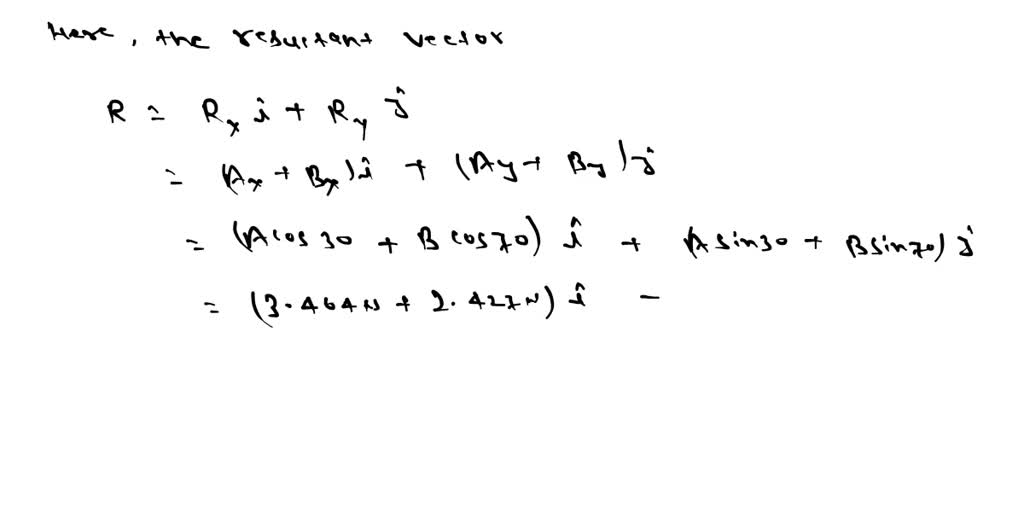 Here, the resultant vector
R = Rₓ î + Rᵧ ĵ
= (Aₓ + Bₓ) î + (Ay + By) ĵ
= (A cos 30 + B cos 70) î + (A sin 30 + B sin 70) ĵ
= (3.464 N + 2.427 N) î –